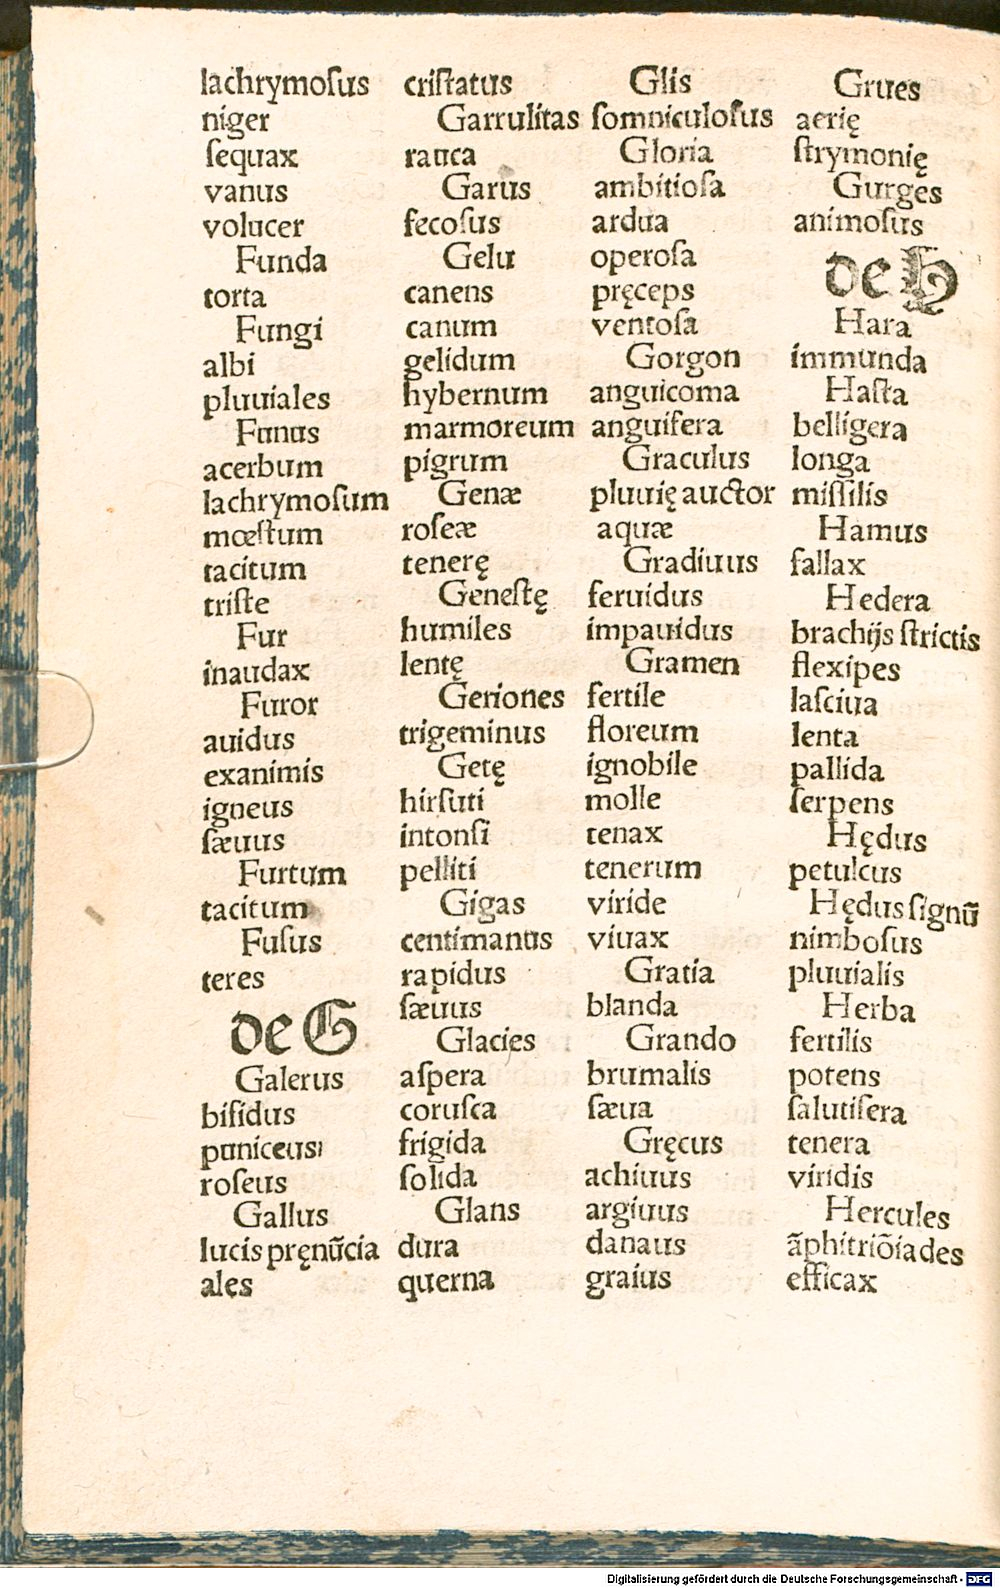 lachrymoſus
niger
ſequax
vanus
volucer
Funda
torta
Fungi
albi
pluuiales
Funus
acerbum
lachrymoſum
mœſtum
tacitum
triſte
Fur
inaudax
Furor
auidus
exanimis
igneus
ſæuus
Furtum
tacitum
Fuſus
teres
de G
Galerus
bifidus
puniceus
roſeus
Gallus
lucis pręnūcia
ales
criſtatus
Garrulitas
rauca
Garus
fecoſus
Gelu
canens
canum
gelidum
hybernum
marmoreum
pigrum
Genæ
roſeæ
tenerę
Geneſtę
humiles
lentę
Geriones
trigeminus
Getę
hirſuti
intonſi
pelliti
Gigas
centimanus
rapidus
ſæuus
Glacies
aſpera
coruſca
frigida
ſolida
Glans
dura
querna
Glis
ſomniculoſus
Gloria
ambitioſa
ardua
operoſa
pręceps
ventoſa
Gorgon
anguicoma
anguifera
Graculus
pluuię auctor
aquæ
Gradiuus
feruidus
impauidus
Gramen
fertile
floreum
ignobile
molle
tenax
tenerum
viride
viuax
Gratia
blanda
Grando
brumalis
ſæua
Gręcus
achiuus
argiuus
danaus
graius
Grues
aerię
ſtrymonię
Gurges
animoſus
de H
Hara
immunda
Haſta
belligera
longa
miſſilis
Hamus
fallax
Hedera
brachijs ſtrictis
flexipes
laſciua
lenta
pallida
ſerpens
Hędus
petulcus
Hędus ſignū
nimboſus
pluuialis
Herba
fertilis
potens
ſalutifera
tenera
viridis
Hercules
āphitriōiades
efficax
Digitalisierung gefördert durch die Deutsche Forschungsgemeinschaft - DFG